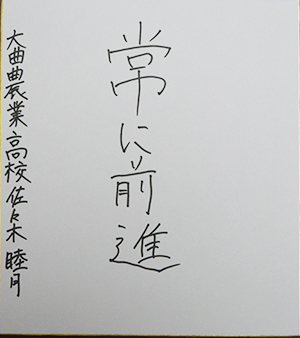 常に前進
大曲農業高校佐々木睦月